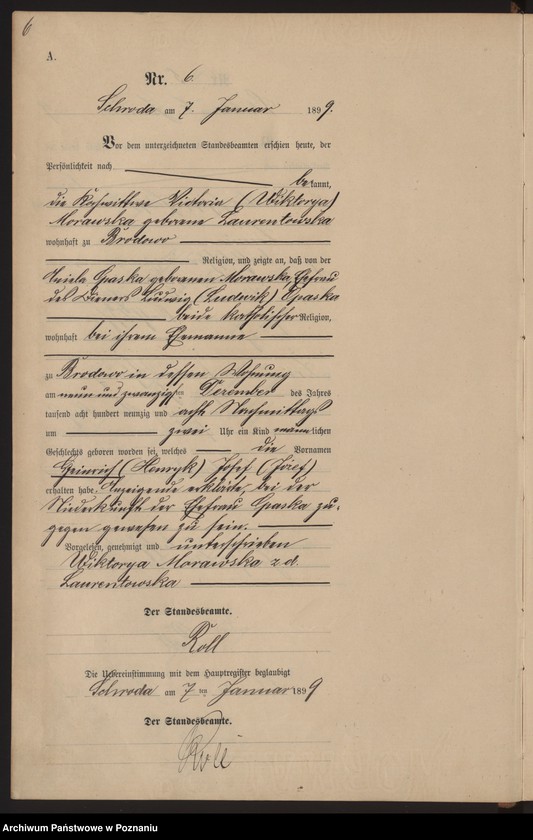 6
A.
Nr. 6.
Schroda am 7. Januar 1899.
Vor dem unterzeichneten Standesbeamten erschien heute, der
Persönlichkeit nach
bekannt,
die Victoria (Wiktorya)
Morawska geborene Laurentowska
wohnhaft zu Brodowo
Religion, und zeigte an, daß von der
Aniela Gpaska geborenen Morawska, Ehefrau
des Dieners Ludwig (Ludwik) Gpaska
beide katholischer Religion,
wohnhaft bei ihrem Ehemanne
zu Brodowo in dessen Wohnung
am neun und zwanzigsten Dezember des Jahres
tausend acht hundert neunzig und acht Nachmittags
um zwei Uhr ein Kind männlichen
Geschlechts geboren worden sei, welches die Vornamen
Heinrich (Henryk) Josef (Józef)
erhalten habe. Anzeigende erklärte, bei der
Niederkunft der Ehefrau Gpaska zu-
gegen gewesen zu sein.
Vorgelesen, genehmigt und unterschrieben
Wiktorya Morawska z d.
Laurentowska
Der Standesbeamte.
Roll
Die Uebereinstimmung mit dem Hauptregister beglaubigt
Schroda am 7ten Januar 1899
Der Standesbeamte.
Roll
Archiwum Państwowe w Poznaniu